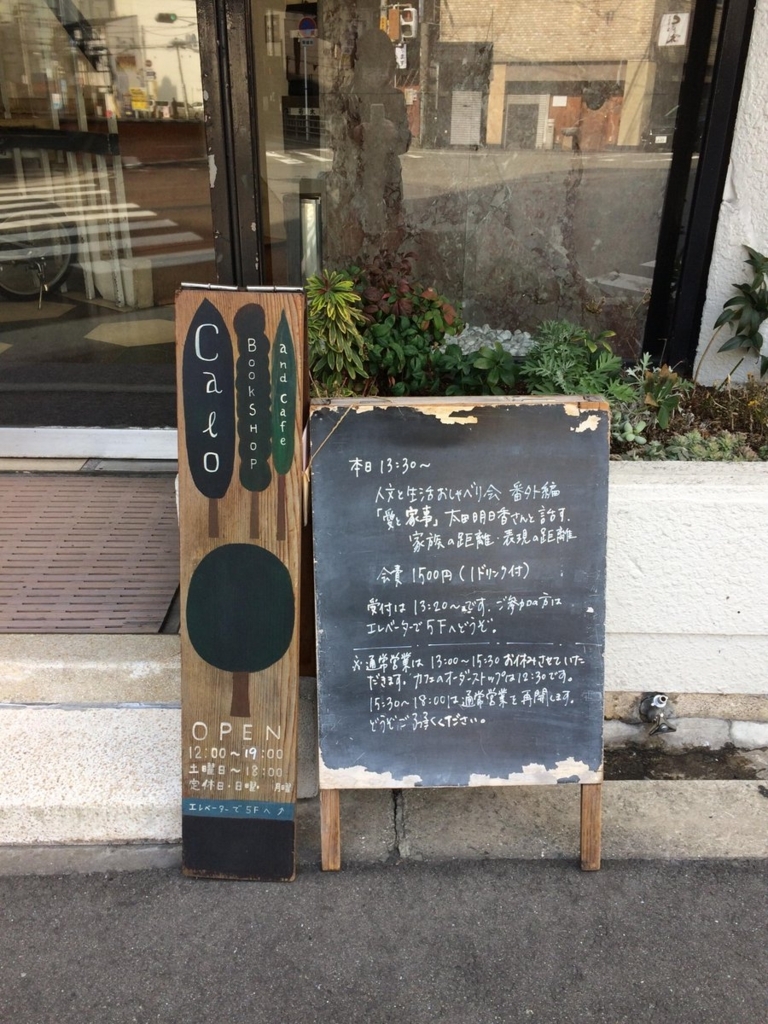 Calo
BOOKSHOP
and cafe
OPEN
12:00〜19:00
土曜日〜18:00
定休日・日曜・月曜
エレベーターで5Fへ↗
本日 13:30〜
人文と生活おしゃべり会 番外編
「愛と家事」太田明日香さんと話す、
家族の距離・表現の距離
会費 1500円(1ドリンク付)
受付は 13:20〜です。ご参加の方は
エレベーターで5Fへどうぞ。
※通常営業は 13:00〜15:30 お休みさせていた
だきます。カフェのオーダーストップは12:30です。
15:30〜18:00は通常営業を再開します。
どうぞご了承ください。